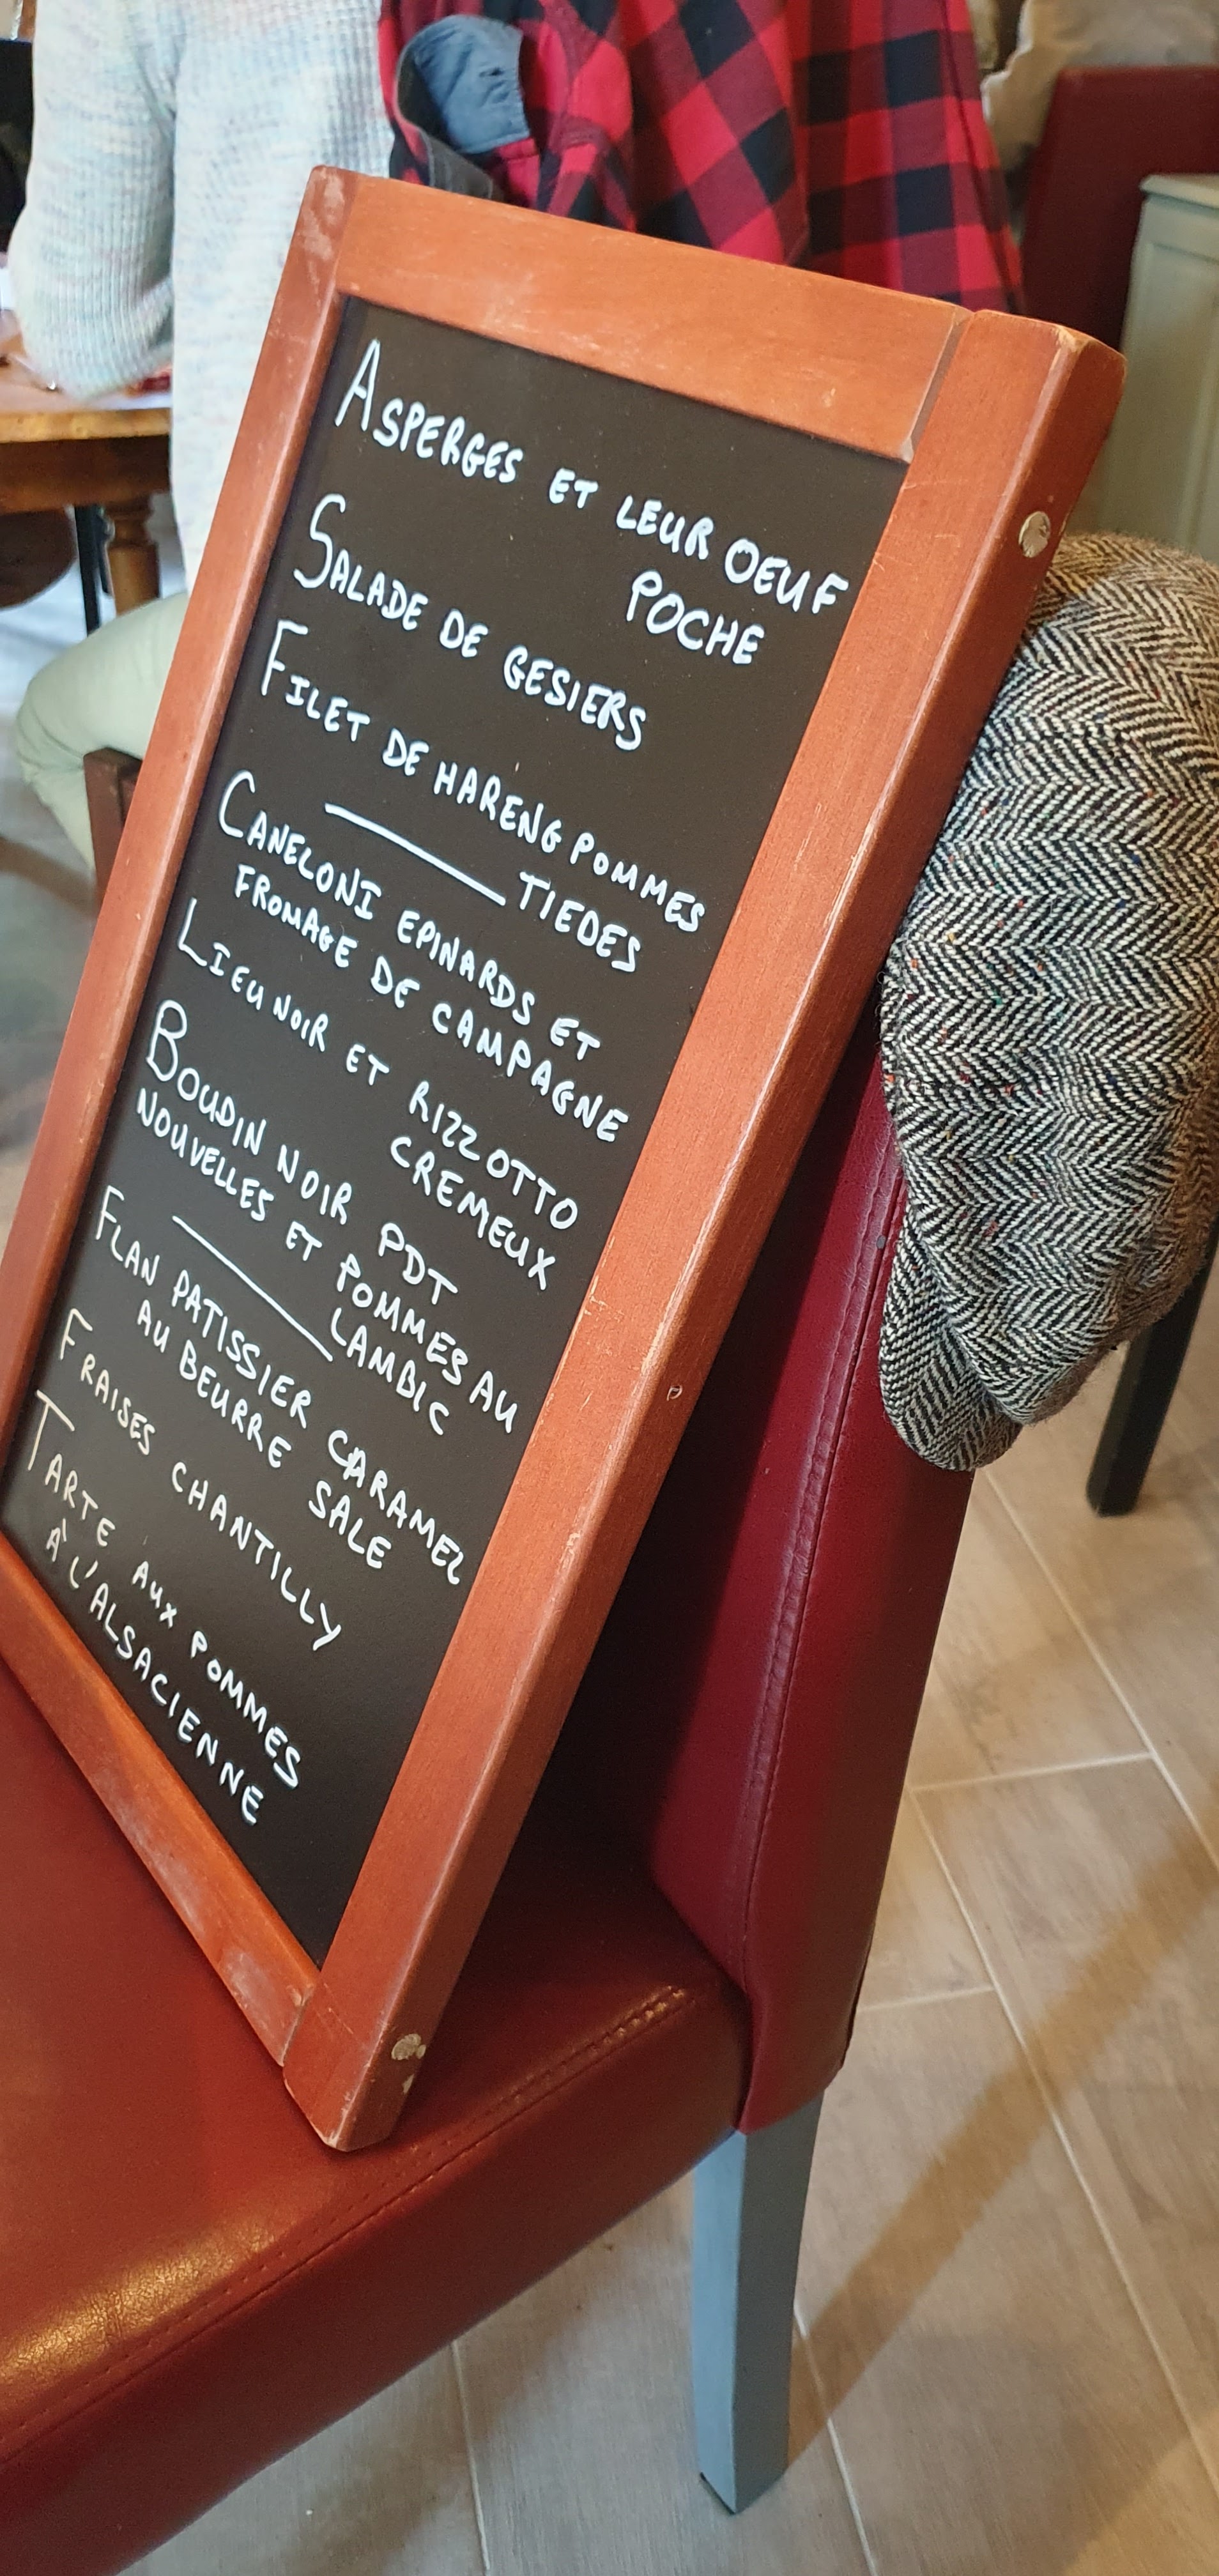 ASPERGES ET LEUR OEUF
POCHE
SALADE DE GESIERS
FILET DE HARENG POMMES
TIEDES
CANELONI EPINARDS ET
FROMAGE DE CAMPAGNE
LIEU NOIR ET RIZZOTTO
CREMEUX
BOUDIN NOIR PDT
NOUVELLES ET POMMES AU
LAMBIC
FLAN PATISSIER CARAMEL
AU BEURRE SALE
FRAISES CHANTILLY
TARTE AUX POMMES
À L'ALSACIENNE